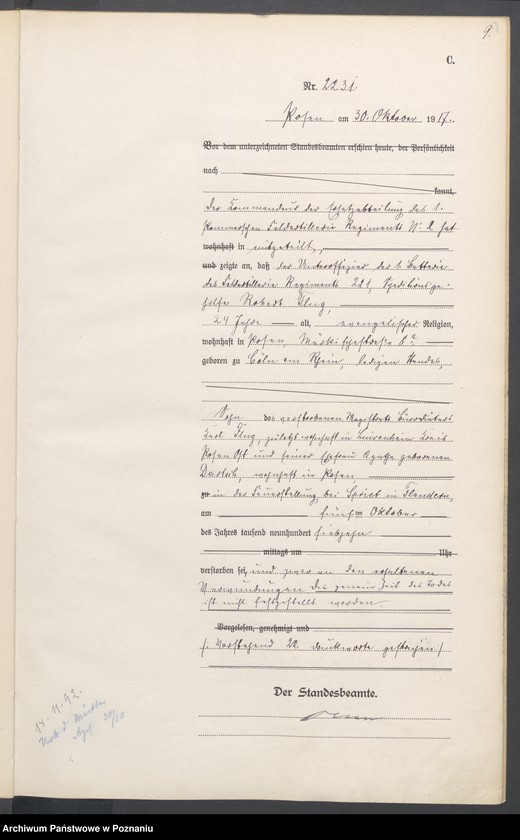 9.
C.
Nr. 2231
Posen am 30. Oktober 1917.
Vor dem unterzeichneten Standesbeamten erschien heute, der Persönlichkeit
nach
kannt,
Der Kommandeur der Ersatzabteilung des 1.
Pommerschen Feldartillerie Regiments Nr. 2 hat
wohnhaft in mitgeteilt,
und zeigte an, daß der Unteroffizier der 1. Batterie
des Feldartillerie Regiments 221, Speditionsge-
hilfe Robert
24 Jahre alt, evangelischer Religion,
wohnhaft in Posen, Märkischestraße 8a
geboren zu Cöln am Rhein, ledigen Standes,
Sohn des verstorbenen Magistrats Bürodiätars
Karl zuletzt wohnhaft in Kreis
Posen Ost und seiner Ehefrau Agathe geborenen
wohnhaft in Posen,
zu in der Feuerstellung bei in Flandern,
am fünften Oktober
des Jahres tausend neunhundert siebzehn
mittags um Uhr
verstorben sei, und zwar an den erhaltenen
Verwundungen. Die genaue Zeit des Todes
ist nicht festgestellt worden.
Vorgelesen, genehmigt und
(: Vorstehend 22 Druckworte gestrichen :)
Der Standesbeamte.
30/10
Archiwum Państwowe w Poznaniu